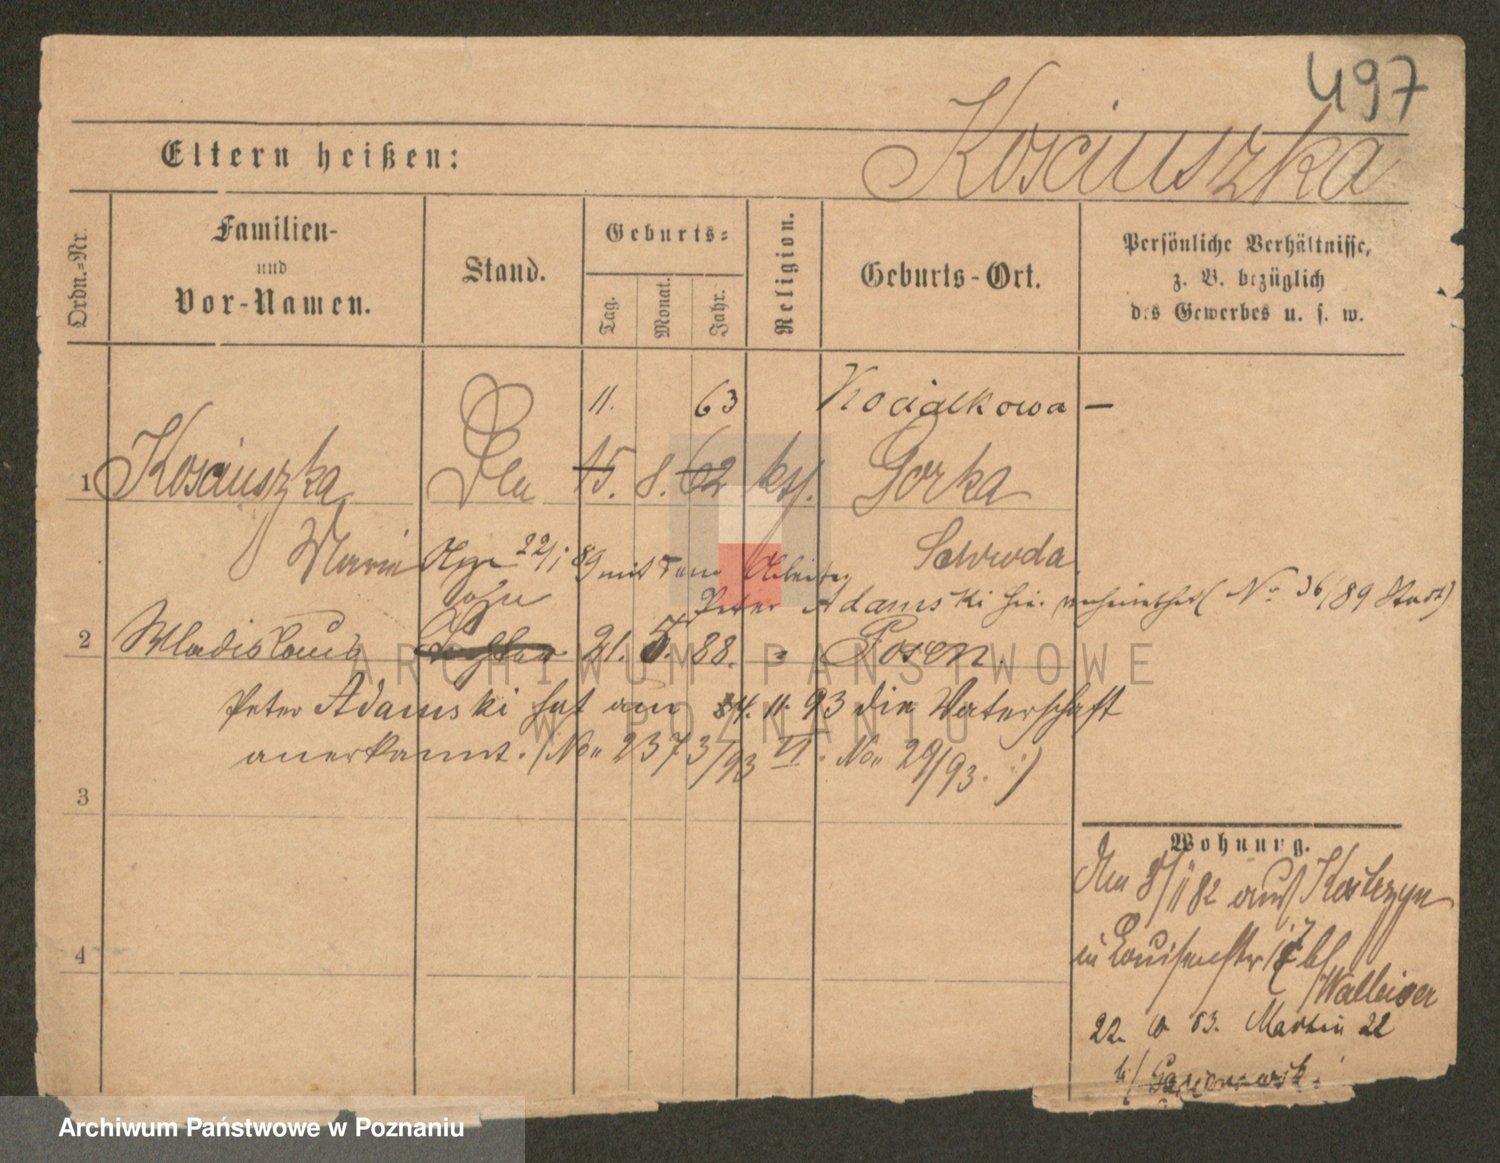 497
Kosciuszka
Eltern heißen:
Ordn.=Nr.
Familien-
und
Vor-Namen.
Stand.
Geburts=
Tag.
Monat.
Jahr.
Religion.
Geburts-Ort.
Persönliche Verhältnisse,
z. B. bezüglich
des Gewerbes u. s. w.
11. 63 Kocialkowa —
1 Kosciuszka 15. 8. 62 kth. Gorka
Marie 22/1 89 mit dem Arbeiter Schroda
Peter Adamski hier verheirathet (No 36/89 Stadt)
Sohn
2 Wladislaus Tochter 21. 5. 88. " Posen.
Peter Adamski hat am 24. 11. 93 die Vaterschaft
anerkannt. (No 2373/93 VI. No 29/93.)
3
4
Wohnung.
Den 8/11 82 aus Kostrzyn
in Louisenstr 17 b/
Walleiser
22. 10 83. Martin 22
b/
ARCHIWUM PAŃSTWOWE
W POZNANIU
Archiwum Państwowe w Poznaniu